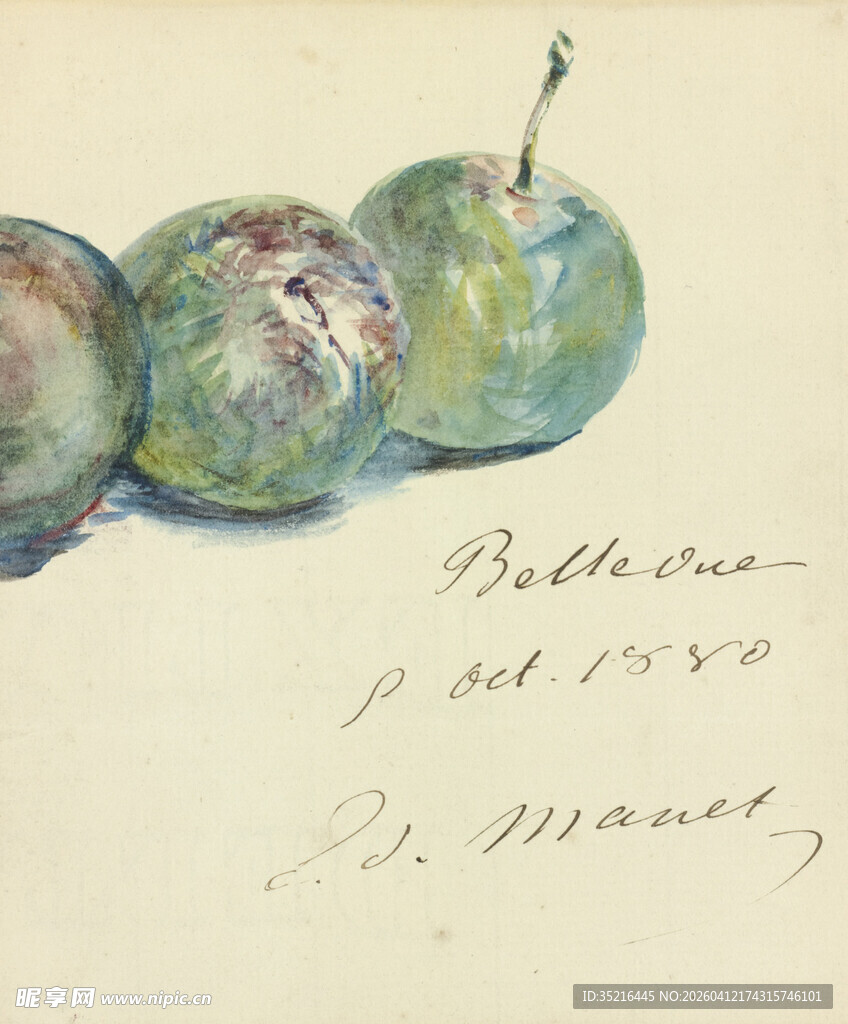 Bellevue
8 oct. 1880
E.d. Manet
昵享网 www.nipic.cn
ID:35216445 NO:20260412174315746101